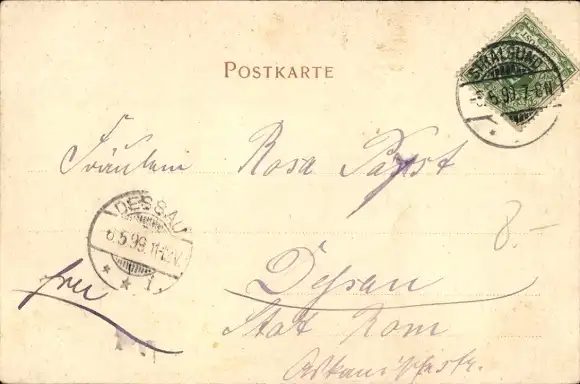 POSTKARTE
STRALSUND
5.99.7-8N
Fräulein Rosa Papst
DESSAU
6.5.99.11-12V.
1.
8.-
Dessau
frei
Stat Rom
Askanischestr.